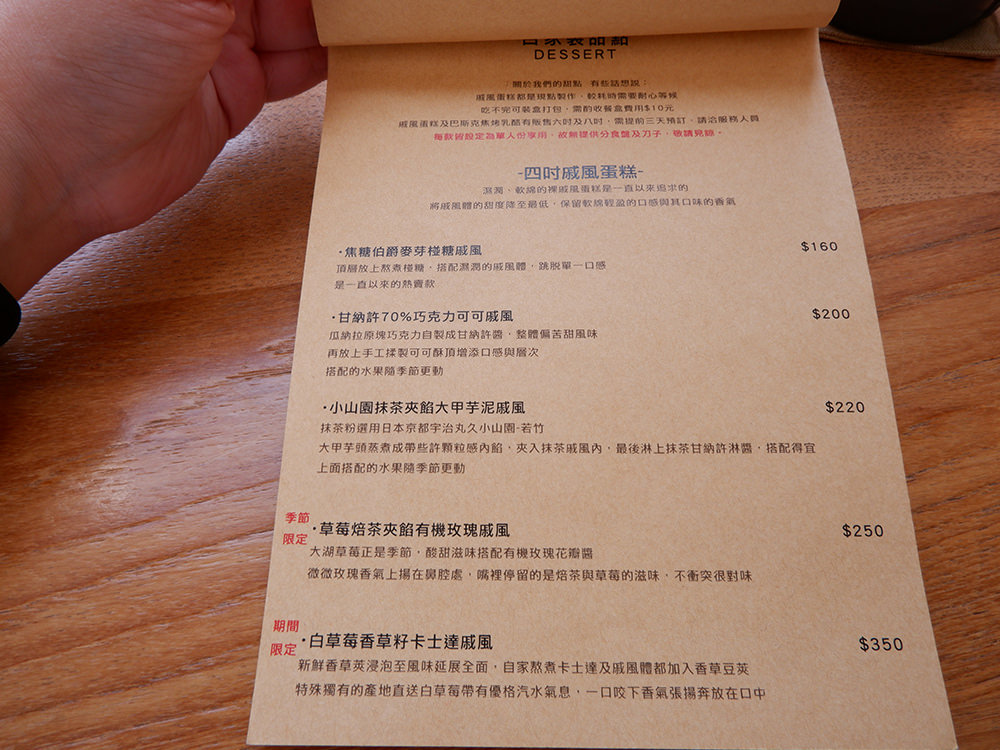 自家製甜點
DESSERT
關於我們的甜點 有些話想說：
戚風蛋糕都是現點製作，較耗時需要耐心等候
吃不完可裝盒打包，需酌收餐盒費用$10元
戚風蛋糕及巴斯克焦烤乳酪有販售六吋及八吋，需提前三天預訂，請洽服務人員
每款皆設定為單人份享用，故無提供分食盤及刀子，敬請見諒。
-四吋戚風蛋糕-
濕潤、軟綿的裸戚風蛋糕是一直以來追求的
將戚風體的甜度降至最低，保留軟綿輕盈的口感與其口味的香氣
·焦糖伯爵麥芽椪糖戚風 $160
頂層放上熬煮椪糖，搭配濕潤的戚風體，跳脫單一口感
是一直以來的熱賣款
·甘納許70%巧克力可可戚風 $200
瓜納拉原塊巧克力自製成甘納許醬，整體偏苦甜風味
再放上手工揉製可可酥頂增添口感與層次
搭配的水果隨季節更動
·小山園抹茶夾餡大甲芋泥戚風 $220
抹茶粉選用日本京都宇治丸久小山園-若竹
大甲芋頭蒸煮成帶些許顆粒感內餡，夾入抹茶戚風內，最後淋上抹茶甘納許淋醬，搭配得宜
上面搭配的水果隨季節更動
季節
限定
·草莓焙茶夾餡有機玫瑰戚風 $250
大湖草莓正是季節，酸甜滋味搭配有機玫瑰花瓣醬
微微玫瑰香氣上揚在鼻腔處，嘴裡停留的是焙茶與草莓的滋味，不衝突很對味
期間
限定
·白草莓香草籽卡士達戚風 $350
新鮮香草莢浸泡至風味延展全面，自家熬煮卡士達及戚風體都加入香草豆莢
特殊獨有的產地直送白草莓帶有優格汽水氣息，一口咬下香氣張揚奔放在口中